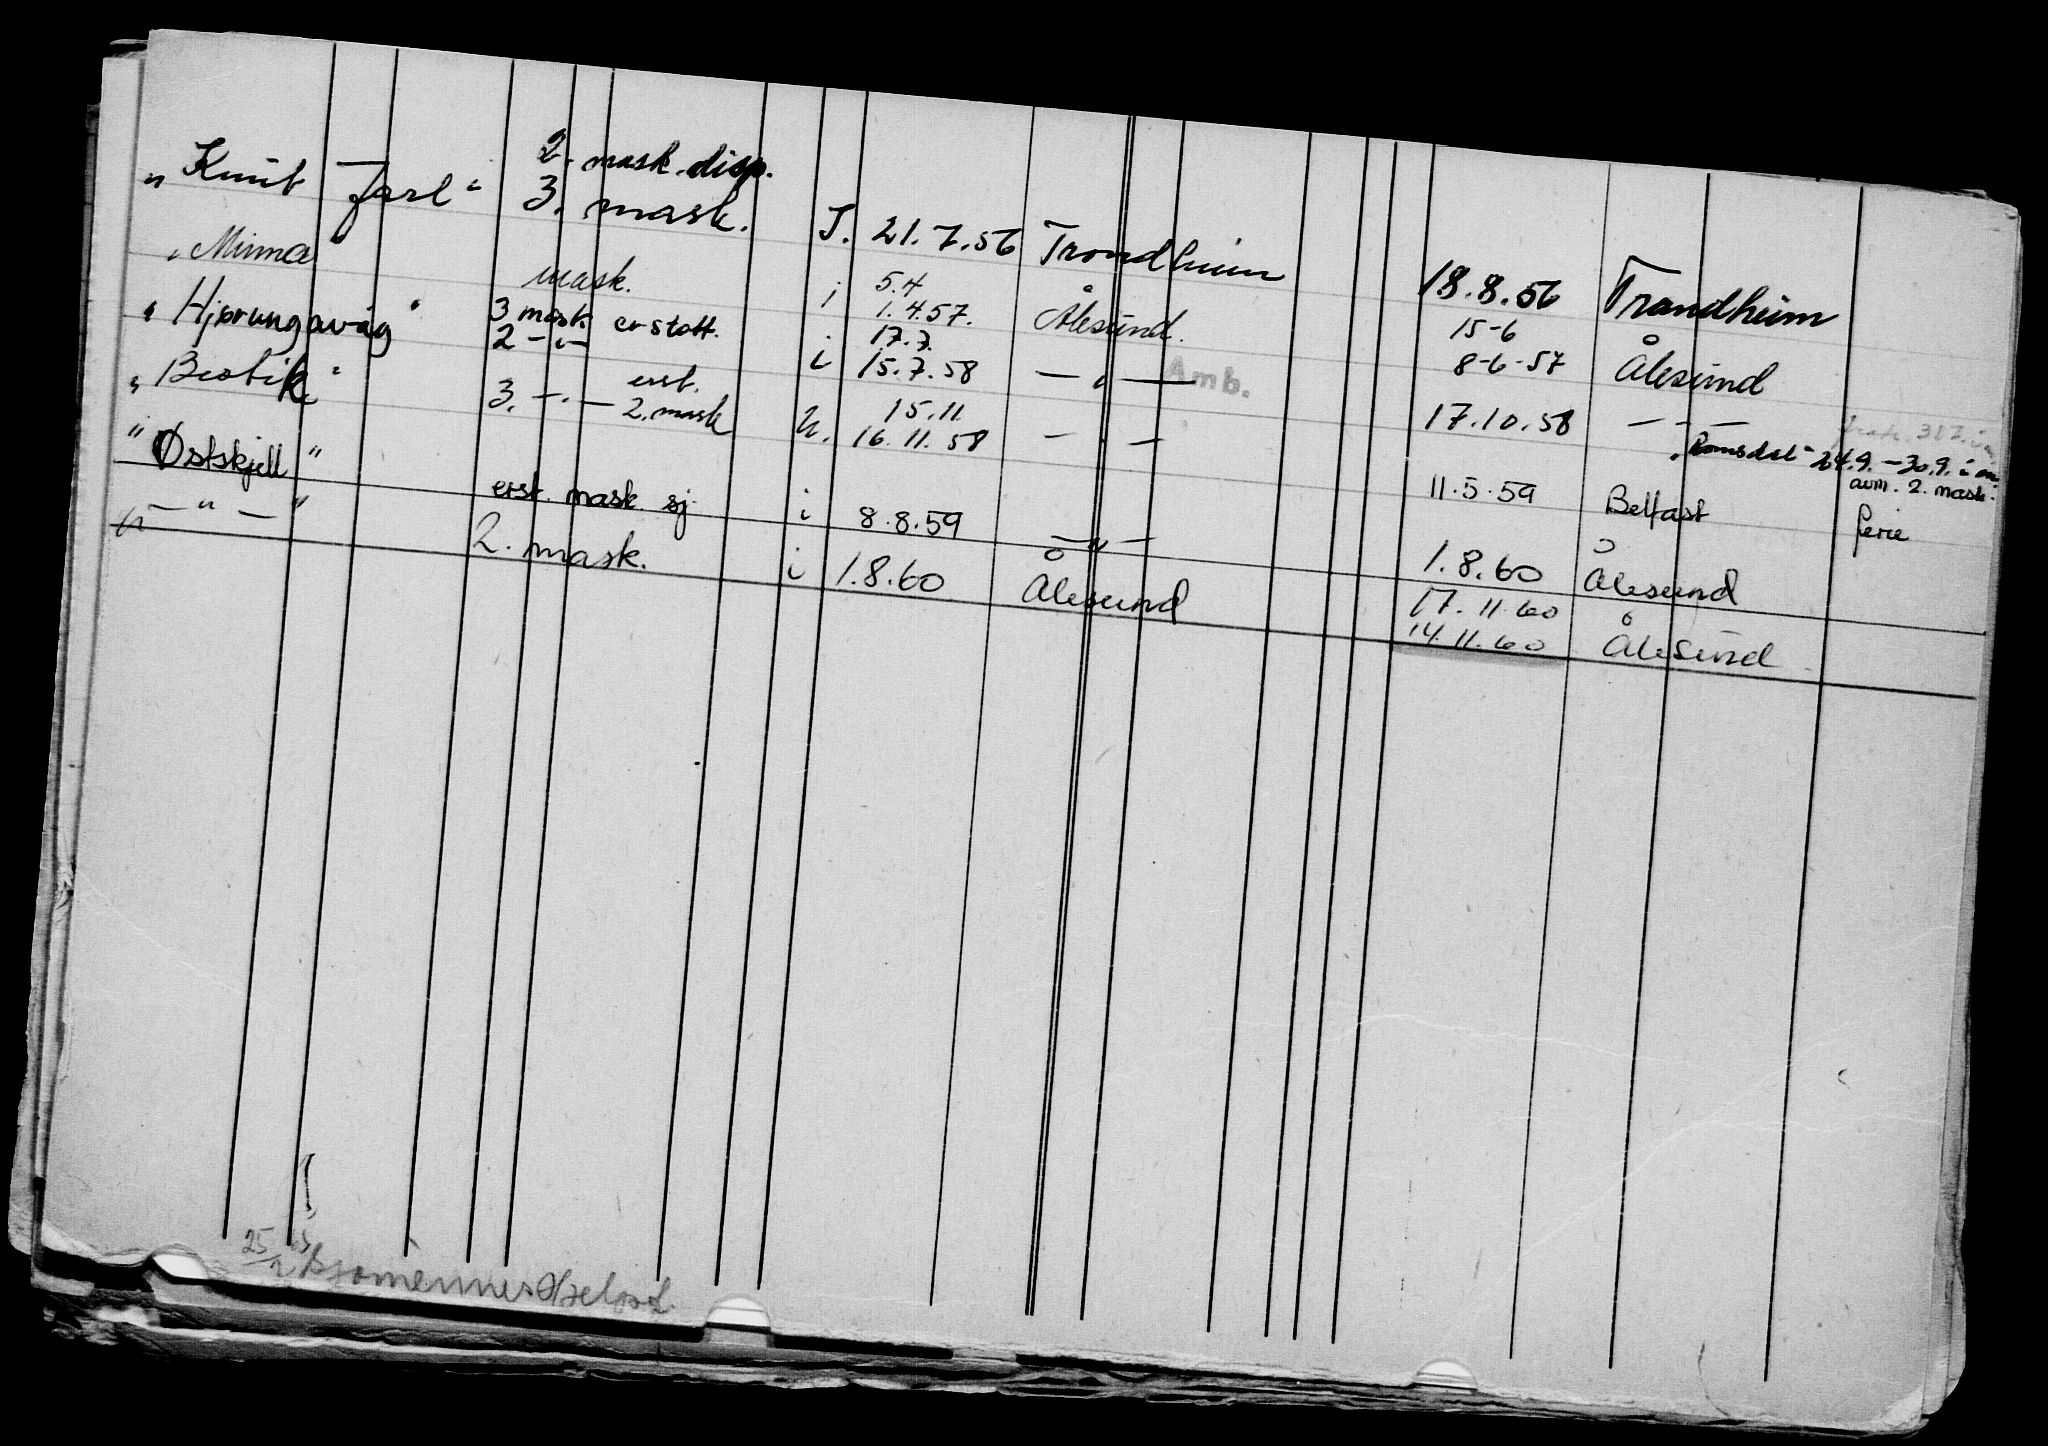 2. mask. disp.
"Knut Jarl" 3. mask. I. 21.7.56 Trondheim 18.8.56 Trondheim
5.4 15-6
"Minna" mask. i 1.4.57. Ålesund. 8-6-57 Ålesund
3 mask erstatt. 17.7.
"Hjørungavåg" 2 -"- i 15.7.58 — " — 17.10.58 — " —
Amb.
"Romsdal" 24.9. - 30.9. i
avm. 2. mask.
erst. 15.11.
"Bestik" 3. -"- 2. mask u. 16.11.58 — " — 11.5.59 Belfast ferie
"Østskjell" erst. mask. sj. i 8.8.59 — " — 1.8.60 Ålesund
17.11.60
— " — 2. mask. i 1.8.60 Ålesund 14.11.60 Ålesund
25/2